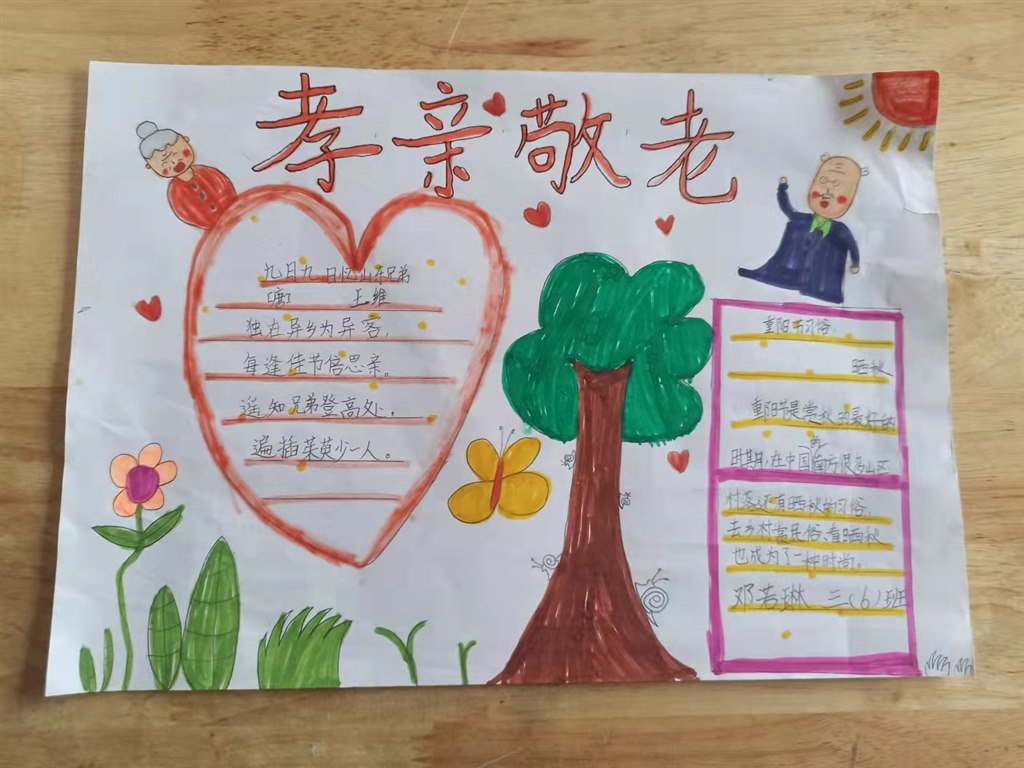 孝亲敬老
九日九日忆山东兄弟
[唐] 王维
独在异乡为异客，
每逢佳节倍思亲。
遥知兄弟登高处，
遍插茱萸少一人。
重阳节习俗
晒秋
重阳节是赏秋的最好的
时期，在中国南方很多的山区
村落还有晒秋的习俗，
去乡村赏民俗、看晒秋
也成为了一种时尚。
邓若琳 三（6）班